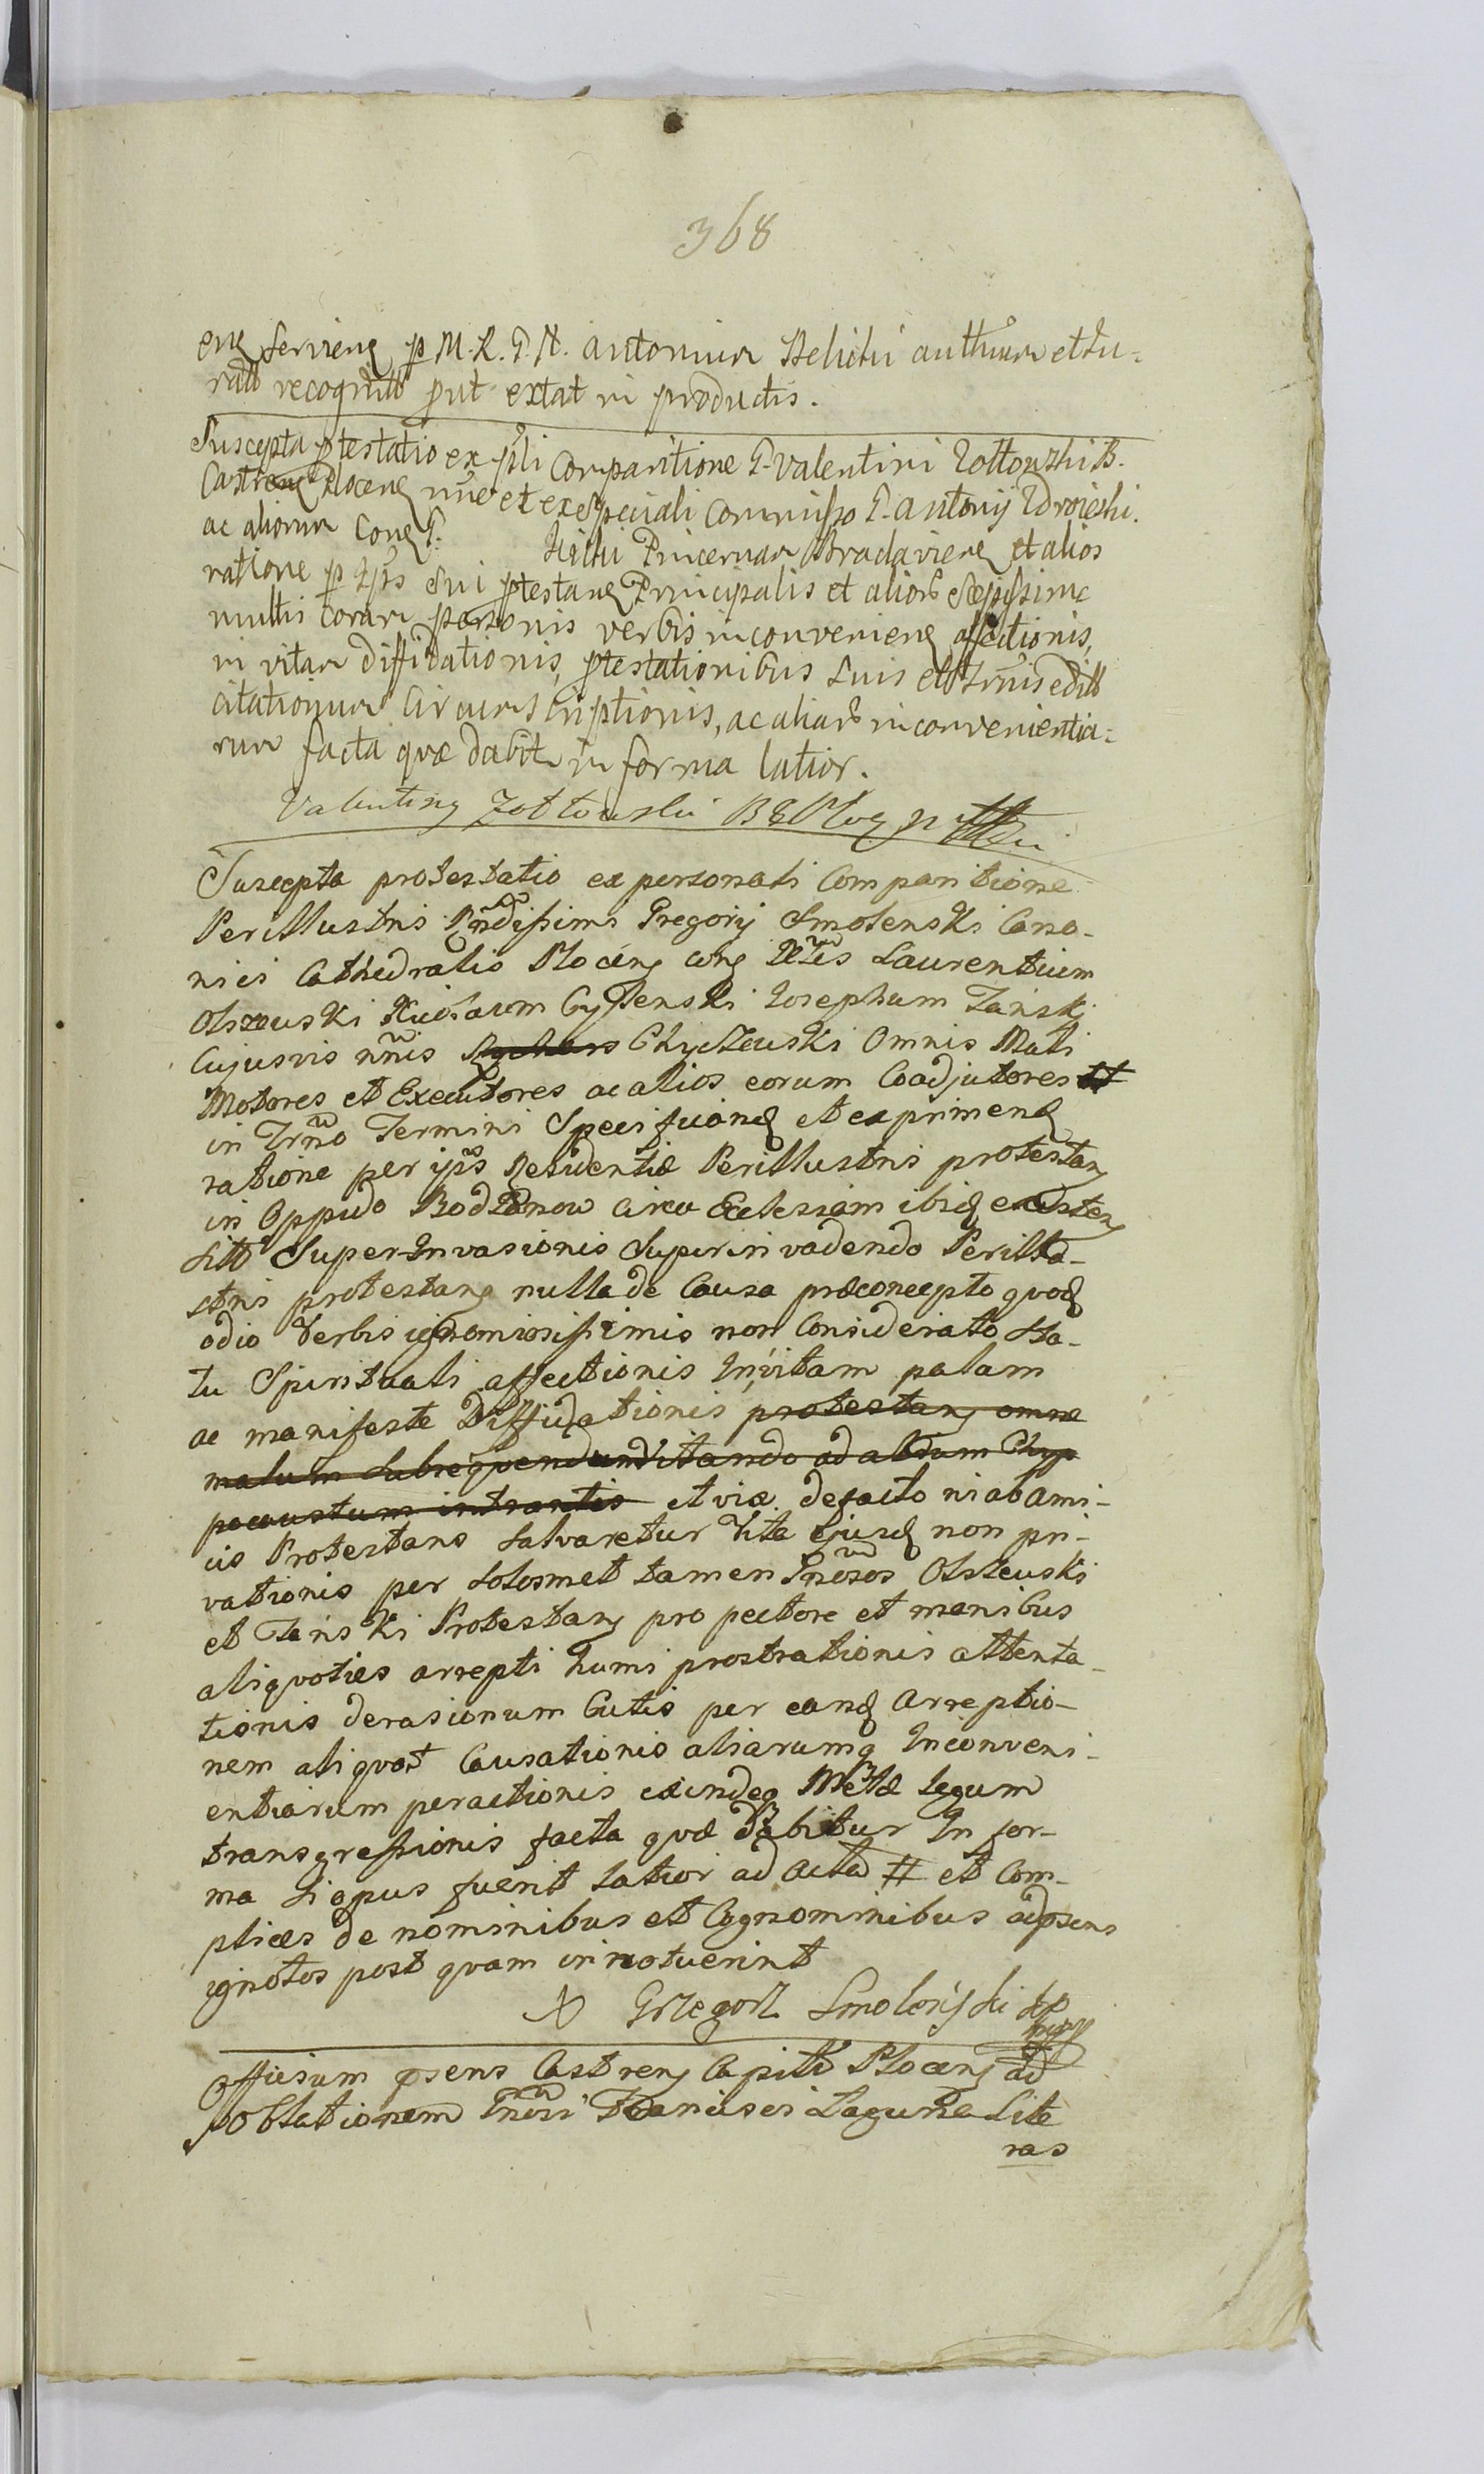 368
enꝫ servienꝫ p M. R. G. N. antonium Belichi authum et Ju-
ratt recognitt put extat in productis.
Suscepta ptestatio ex psli Comparitione G. Valentini Zottowski B.
Castrenꝫ Plocenꝫ nne et ex speciali Commisso G. Antonij Zdroieski.
ac aliorum Conꝫ G. Pincernam Bradaviensꝫ et alios
ratione p ips sui ptestanꝫ Principalis et alior sæpissime
multis coram personis verbis inconvenienꝫ affectionis,
in vitam diffidationis, ptestationibus suis et Trnis editt
citationum Circumscriptionis, ac aliar inconvenientia-
rum facta quæ dabit in forma latior.
Valentiny Zottowski B G Ploc
Suscepta protestatio ex personali Comparitione
Perillustris Rndissimi Gregorij Smolenski Cano-
nici Cathedralis Plocenꝫ conꝫ Laurentium
Olszewski Josephum Tanskj
Cujusvis nnis Chyczewski Omnis Mali
Motores et Executores ac alios eorum Coadjutores #
in Trno Termini Specificanꝫ et exprimenꝫ
ratione per ips Residentiæ Perillustris protestanꝫ
in Oppido Bodzanow circa Ecclesiam ibidꝫ existenꝫ
sitt Super-Invasionis Superinvadendo Perillu-
stris protestanꝫ nulla de Causa præconcepto quodꝫ
odio Verbis ignomiosissimis non Considerato Sta-
tu Spirituali affectionis Invitam palam
ac manifeste Diffidationis protestanꝫ omne
malum subsequendum vitando ad aliam
intrantis et vix defacto ni ab ami-
cis Protestans salvaretur Vita Ejusdꝫ non pri-
vationis per solosmet tamen Gnosos Olszewski
et Tanski Protestanꝫ pro pectore et manibus
aliquoties arrepti humi prostrationis attenta-
tionis derasionum Cutis per eandꝫ Arreptio-
nem aliquot Causationis aliarumq Inconveni-
entiarum peractionis exindeq Metæ legum
transgressionis facta quæ dabitur In for-
ma si opus fuerit latior ad acta # et Com-
plices de nominibus et Cognominibus adpsens
ignotos post quam innotuerint
X Grzegorz Smoleński
Officium psens Castrenꝫ Capitt Plocenꝫ ad
Oblationem Gnosi Francisci Laguna Lite
ras